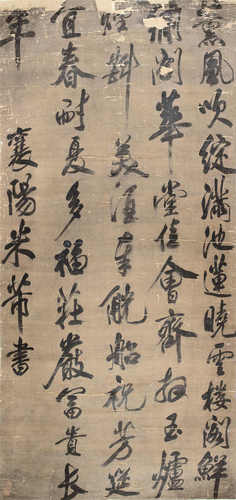 薰風吹綻滿池蓮曉雲樓閣鮮
閣華堂佳會齊拈玉爐
煙斟美酒奉觥船祝芳筵
宜春耐夏多福莊嚴富貴長
年 襄陽米芾書